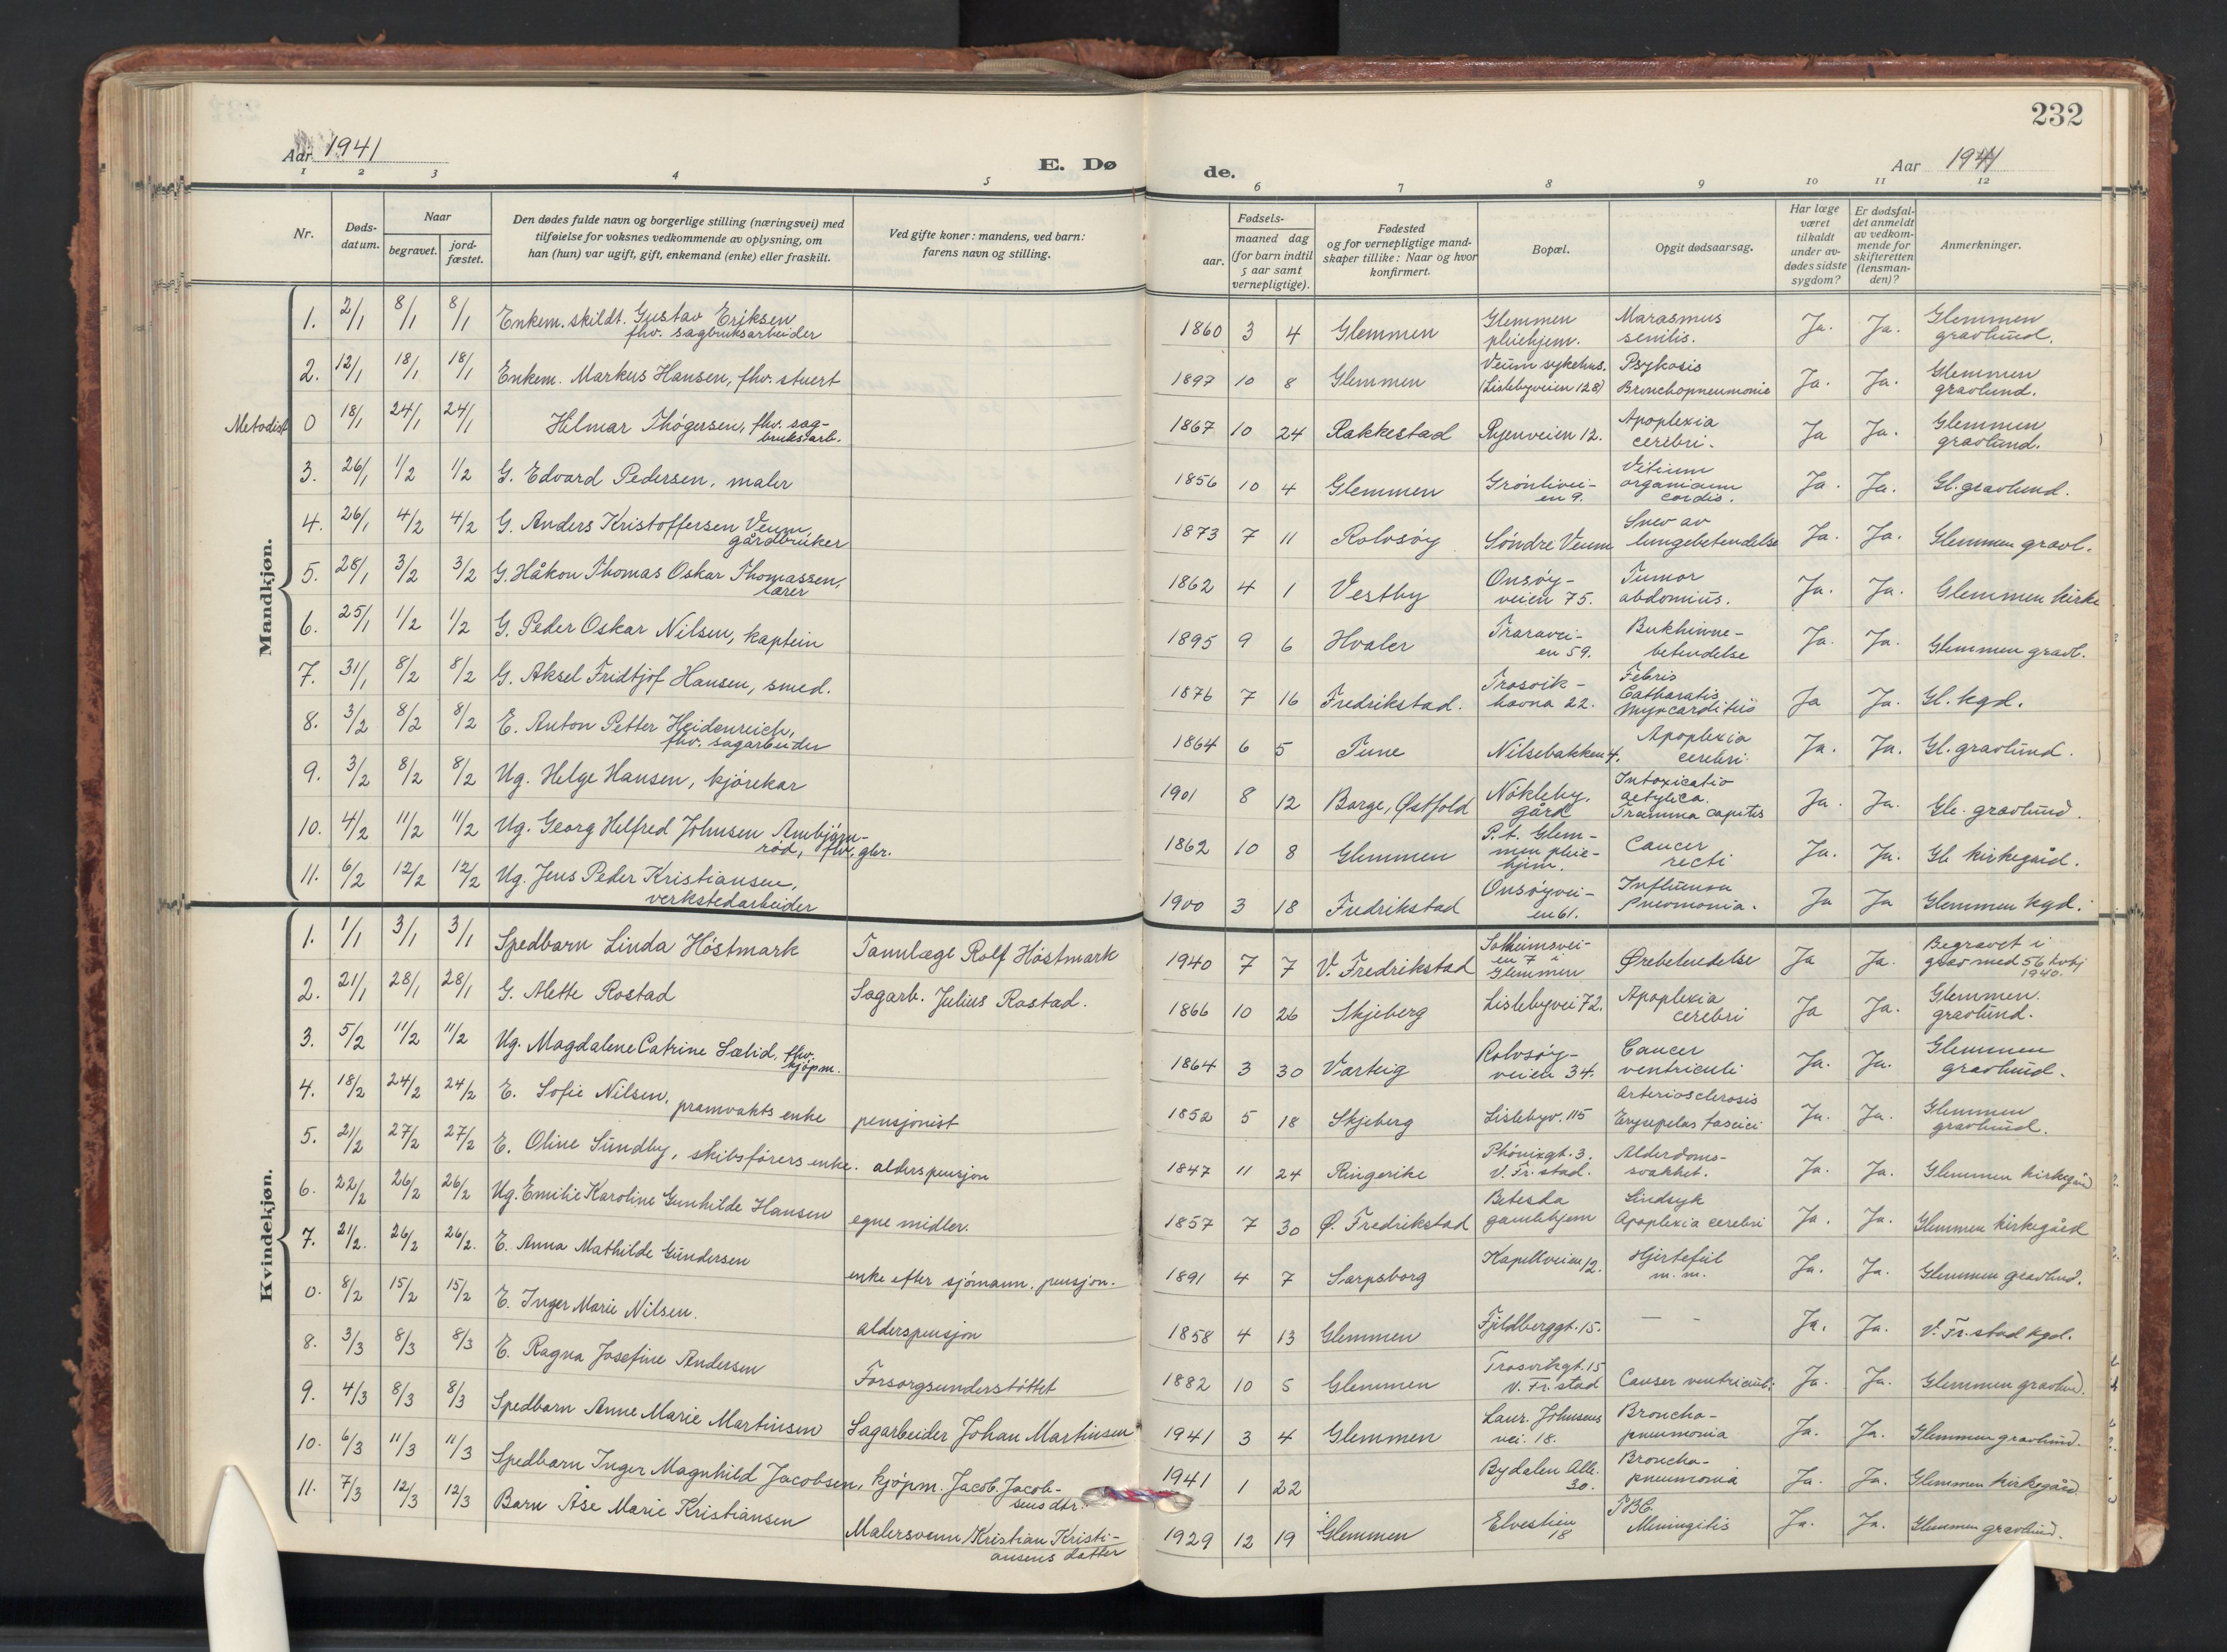 232
Aar 1941
E. Dø
de.
Aar 1941
1 2 3 4 5
6 7 8 9 10 11 12
Nr.
Døds-
datum.
Naar
begravet.
jord-
fæstet.
Den dødes fulde navn og borgerlige stilling (næringsvei) med
tilføielse for voksnes vedkommende av oplysning, om
han (hun) var ugift, gift, enkemand (enke) eller fraskilt.
Ved gifte koner: mandens, ved barn:
farens navn og stilling.
Fødsels-
aar.
maaned dag
(for barn indtil
5 aar samt
vernepligtige).
Fødested
og for vernepligtige mand-
skaper tillike: Naar og hvor
konfirmert.
Bopæl.
Opgit dødsaarsag.
Har læge
været
tilkaldt
under av-
dødes sidste
sygdom?
Er dødsfal-
det anmeldt
av vedkom-
mende for
skifteretten
(lensman-
den)?
Anmerkninger.
Mandkjøn.
1. 2/1 8/1 8/1 Enkem. skildt. Gustav Eriksen
fhv. sagbruksarbeider
1860 3 4 Glemmen
Glemmen
pleiehjem.
Marasmus
senilis.
Ja. Ja.
Glemmen
gravlund.
2. 12/1 18/1 18/1 Enkem. Markus Hansen, fhv. stuert
1897 10 8 Glemmen
Veum sykehus.
(Lislebyveien 128)
Psykosis
Bronchopneumonie
Ja. Ja.
Glemmen
gravlund.
Metodist 0 18/1 24/1 24/1 Hilmar Thøgersen, fhv. sag-
bruksarb.
1867 10 24 Rakkestad Ryenveien 12.
Apoplexia
cerebri.
Ja Ja.
Glemmen
gravlund.
3. 26/1 1/2 1/2 G. Edvard Pedersen, maler
1856 10 4 Glemmen
Grønlivei-
en 9.
Vitium
organicum
cordis.
Ja. Ja. Gl. gravlund.
4. 26/1 4/2 4/2 G. Anders Kristoffersen Veum,
gårdbruker
1873 7 11 Rolvsøy Søndre Veum
Snev av
lungebetendelse
Ja. Ja. Glemmen gravl.
5. 28/1 3/2 3/2 G. Håkon Thomas Oskar Thomassen,
lærer
1862 4 1 Vestby
Onsøy-
veien 75.
Tumor
abdominis.
Ja. Ja. Glemmen kirke
6. 25/1 1/2 1/2 G. Peder Oskar Nilsen, kaptein
1895 9 6 Hvaler
Traravei-
en 59.
Bukhinne-
betendelse
Ja. Ja. Glemmen gravl.
7. 31/1 8/2 8/2 G. Aksel Fridtjof Hansen, smed.
1876 7 16 Fredrikstad.
Trosvik-
havna 22.
Febris
Catharalis
Myocarditis
Ja Ja. Gl. kgd.
8. 3/2 8/2 8/2 E. Anton Petter Heidenreich,
fhv. sagarbeider
1864 6 5 Tune Nilsebakken 4.
Apoplexia
cerebri.
Ja. Ja. Gl. gravlund.
9. 3/2 8/2 8/2 Ug. Helge Hansen, kjørekar
1901 8 12 Borge, Østfold
Nøkleby,
gård
Intoxicatio
aetylica.
Tramma capitis
Ja. Ja. Gle. gravlund.
10. 4/2 11/2 11/2 Ug. Georg Helfred Johnsen Ambjørn-
rød, fhv. gbr.
1862 10 8 Glemmen
P.t. Glem-
men pleie-
hjem.
Cancer
recti
Ja. Ja. Gl kirkegård.
11. 6/2 12/2 12/2 Ug. Jens Peder Kristiansen,
verkstedarbeider
1900 3 18 Fredrikstad
Onsøyvei-
en 61.
Influensa
Pneomonia.
Ja Ja Glemmen kgd.
Kvindekjøn.
1. 1/1 3/1 3/1 Spedbarn Linda Høstmark Tannlæge Rolf Høstmark
1940 7 7 V. Fredrikstad
Solheimsvei-
en 7 i
Glemmen
Ørebetendelse
Ja Ja.
Begravet i
grav med 56 kvkj
1940.
2. 21/1 28/1 28/1 G. Alette Rostad Sagarb. Julius Rostad.
1866 10 26 Skjeberg Lislebyvei 72.
Apoplexia
cerebri
Ja Ja.
Glemmen.
gravlund.
3. 5/2 11/2 11/2 Ug. Magdalene Catrine Sælid, fhv.
kjøpm.
1864 3 30 Varteig
Rolvsøy-
veien 34.
Cancer
ventriculi
Ja. Ja.
Glemmen
gravlund.
4. 18/2 24/2 24/2 E. Sofie Nilsen, pramvakts enke pensjonist
1852 5 18 Skjeberg Lislebyv. 115
Arteriosclerosis
Erysepelas fascici
Ja. Ja.
Glemmen
gravlund.
5. 21/2 27/2 27/2 E. Oline Sundby, skibsførers enke. alderspensjon
1847 11 24 Ringerike
Phönixgt. 3.
V. Fr. stad.
Alderdoms-
svakhet.
Ja. Ja. Glemmen kirkegård
6. 22/2 26/2 26/2 Ug. Emilie Karoline Gunhilde Hansen egne midler.
1857 7 30 Ø. Fredrikstad
Betesda
gamlehjem
Sindsyk
Apoplexia cerebri
Ja. Ja. Glemmen kirkegård
7. 21/2. 26/2 26/2. E. Anna Mathilde Gundersen enke efter sjømann, pensjon.
1891 4 7 Sarpsborg Kapellveien 12.
Hjertefeil
m. m.
Ja. Ja. Glemmen gravlund.
0. 8/2 15/2 15/2 E. Inger Marie Nilsen. alderspensjon
1858 4 13 Glemmen Fjeldberggt. 15. — - Ja. Ja. V. Fr. stad kgd.
8. 3/3 8/3 8/3 E. Ragna Josefine Andersen Forsorgsunderstøttet
1882 10 5 Glemmen
Trosvikgt. 15
V. Fr. stad
Canser ventriculi
Ja. Ja. Glemmen gravlund.
9. 4/3 8/3 8/3 Spedbarn Anne Marie Martinsen Sagarbeider Johan Martinsen
1941 3 4 Glemmen
Laur. Johnsens
vei. 18.
Broncho-
pneumonia
Ja. Ja. Glemmen gravlund.
10. 6/3 11/3 11/3 Spedbarn Inger Magnhild Jacobsen, kjøpm. Jacob. Jacob-
sens dtr.
1941 1 22
Bydalen Alle.
30.
Broncho-
pneumonia
Ja. Ja. Glemmen kirkegård.
11. 7/3 12/3 12/3 Barn Åse Marie Kristiansen Malersvenn Kristian Kristi-
ansens datter
1929 12 19 Glemmen
Elvestien
18
TBC.
Meningitis
Ja. Ja. Glemmen gravlund.